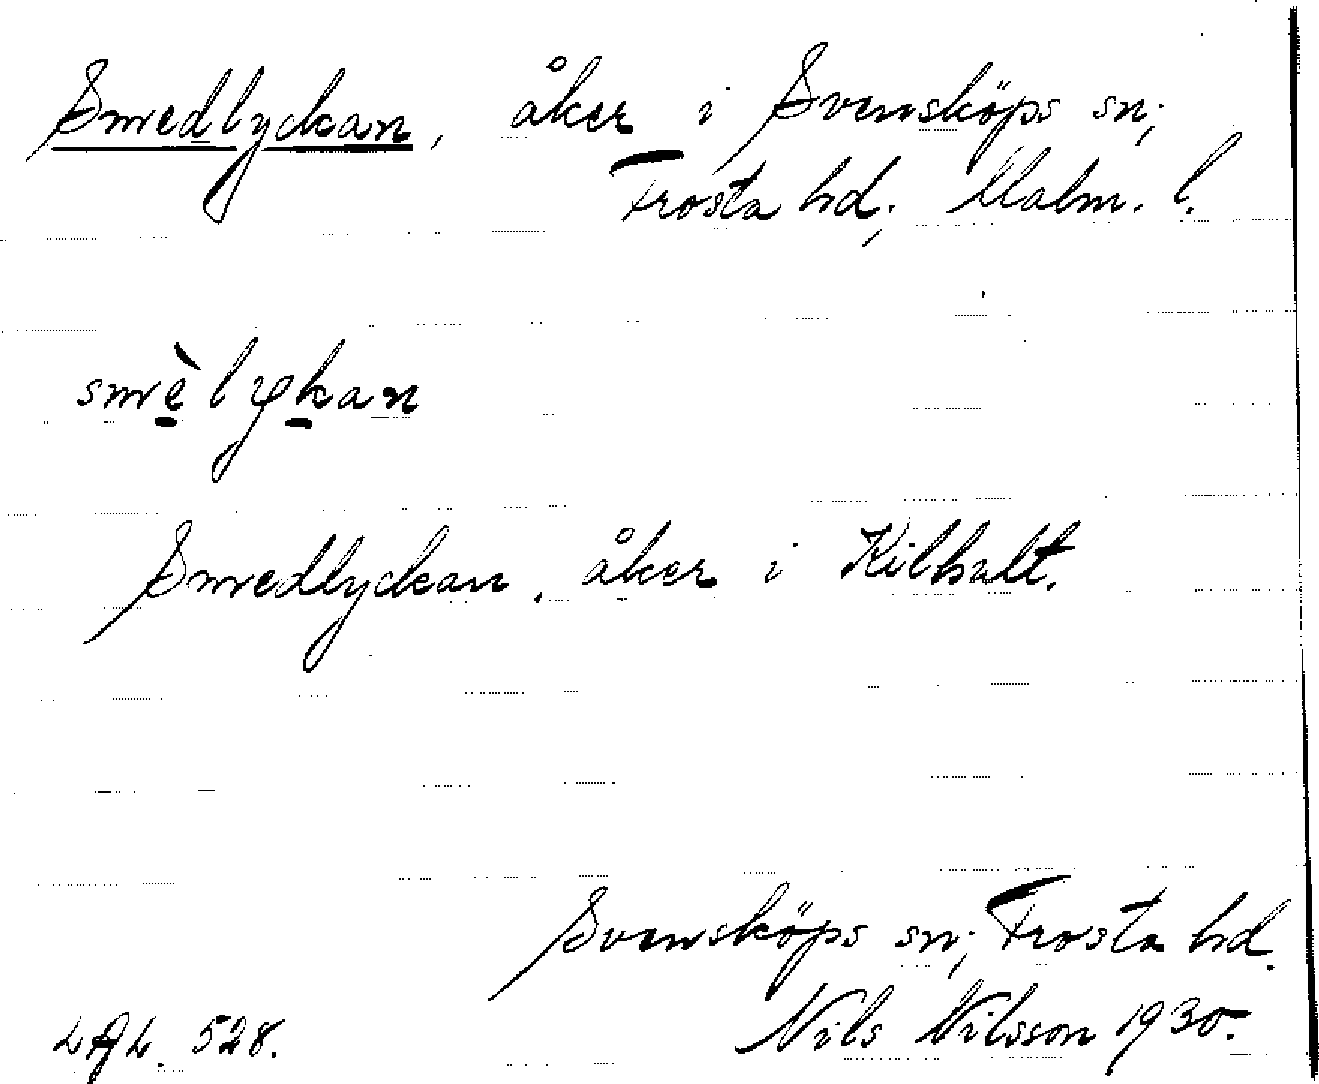 Smedlyckan, åker i Svensköps sn,
Frosta hd, Malm. l.
smèlykan
Smedlyckan, åker i Kilhult.
Svensköps sn, Frosta hd.
528. Nils Nilsson 1930.